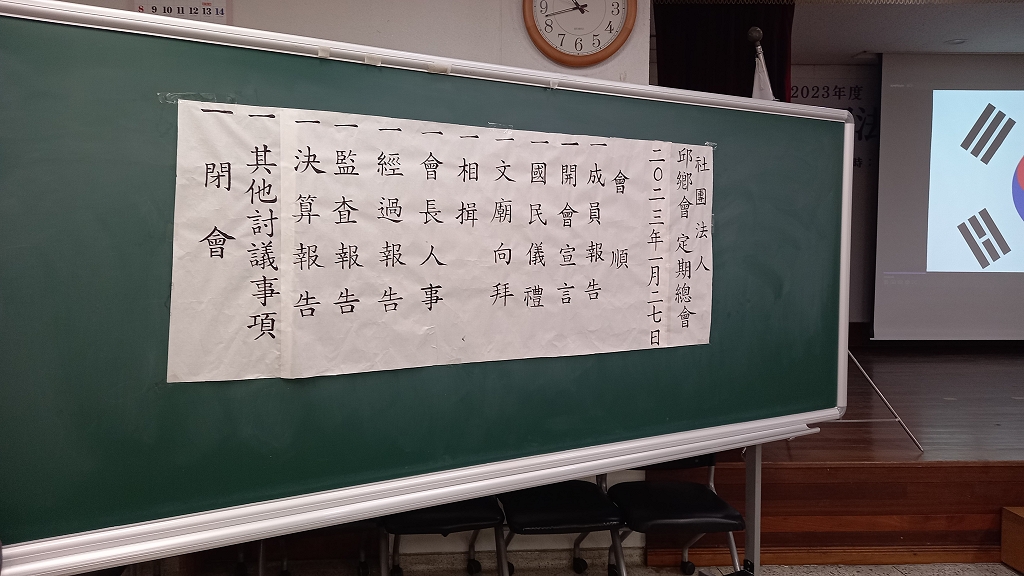 社團法人
邱鄕會 定期總會
二〇二三年一月二七日
會順
一 成員報告
一 開會宣言
一 國民儀禮
一 文廟向拜
一 相揖
一 會長人事
一 經過報告
一 監査報告
一 決算報告
一 其他討議事項
一 閉會
8 9 10 11 12 13 14
2023年度